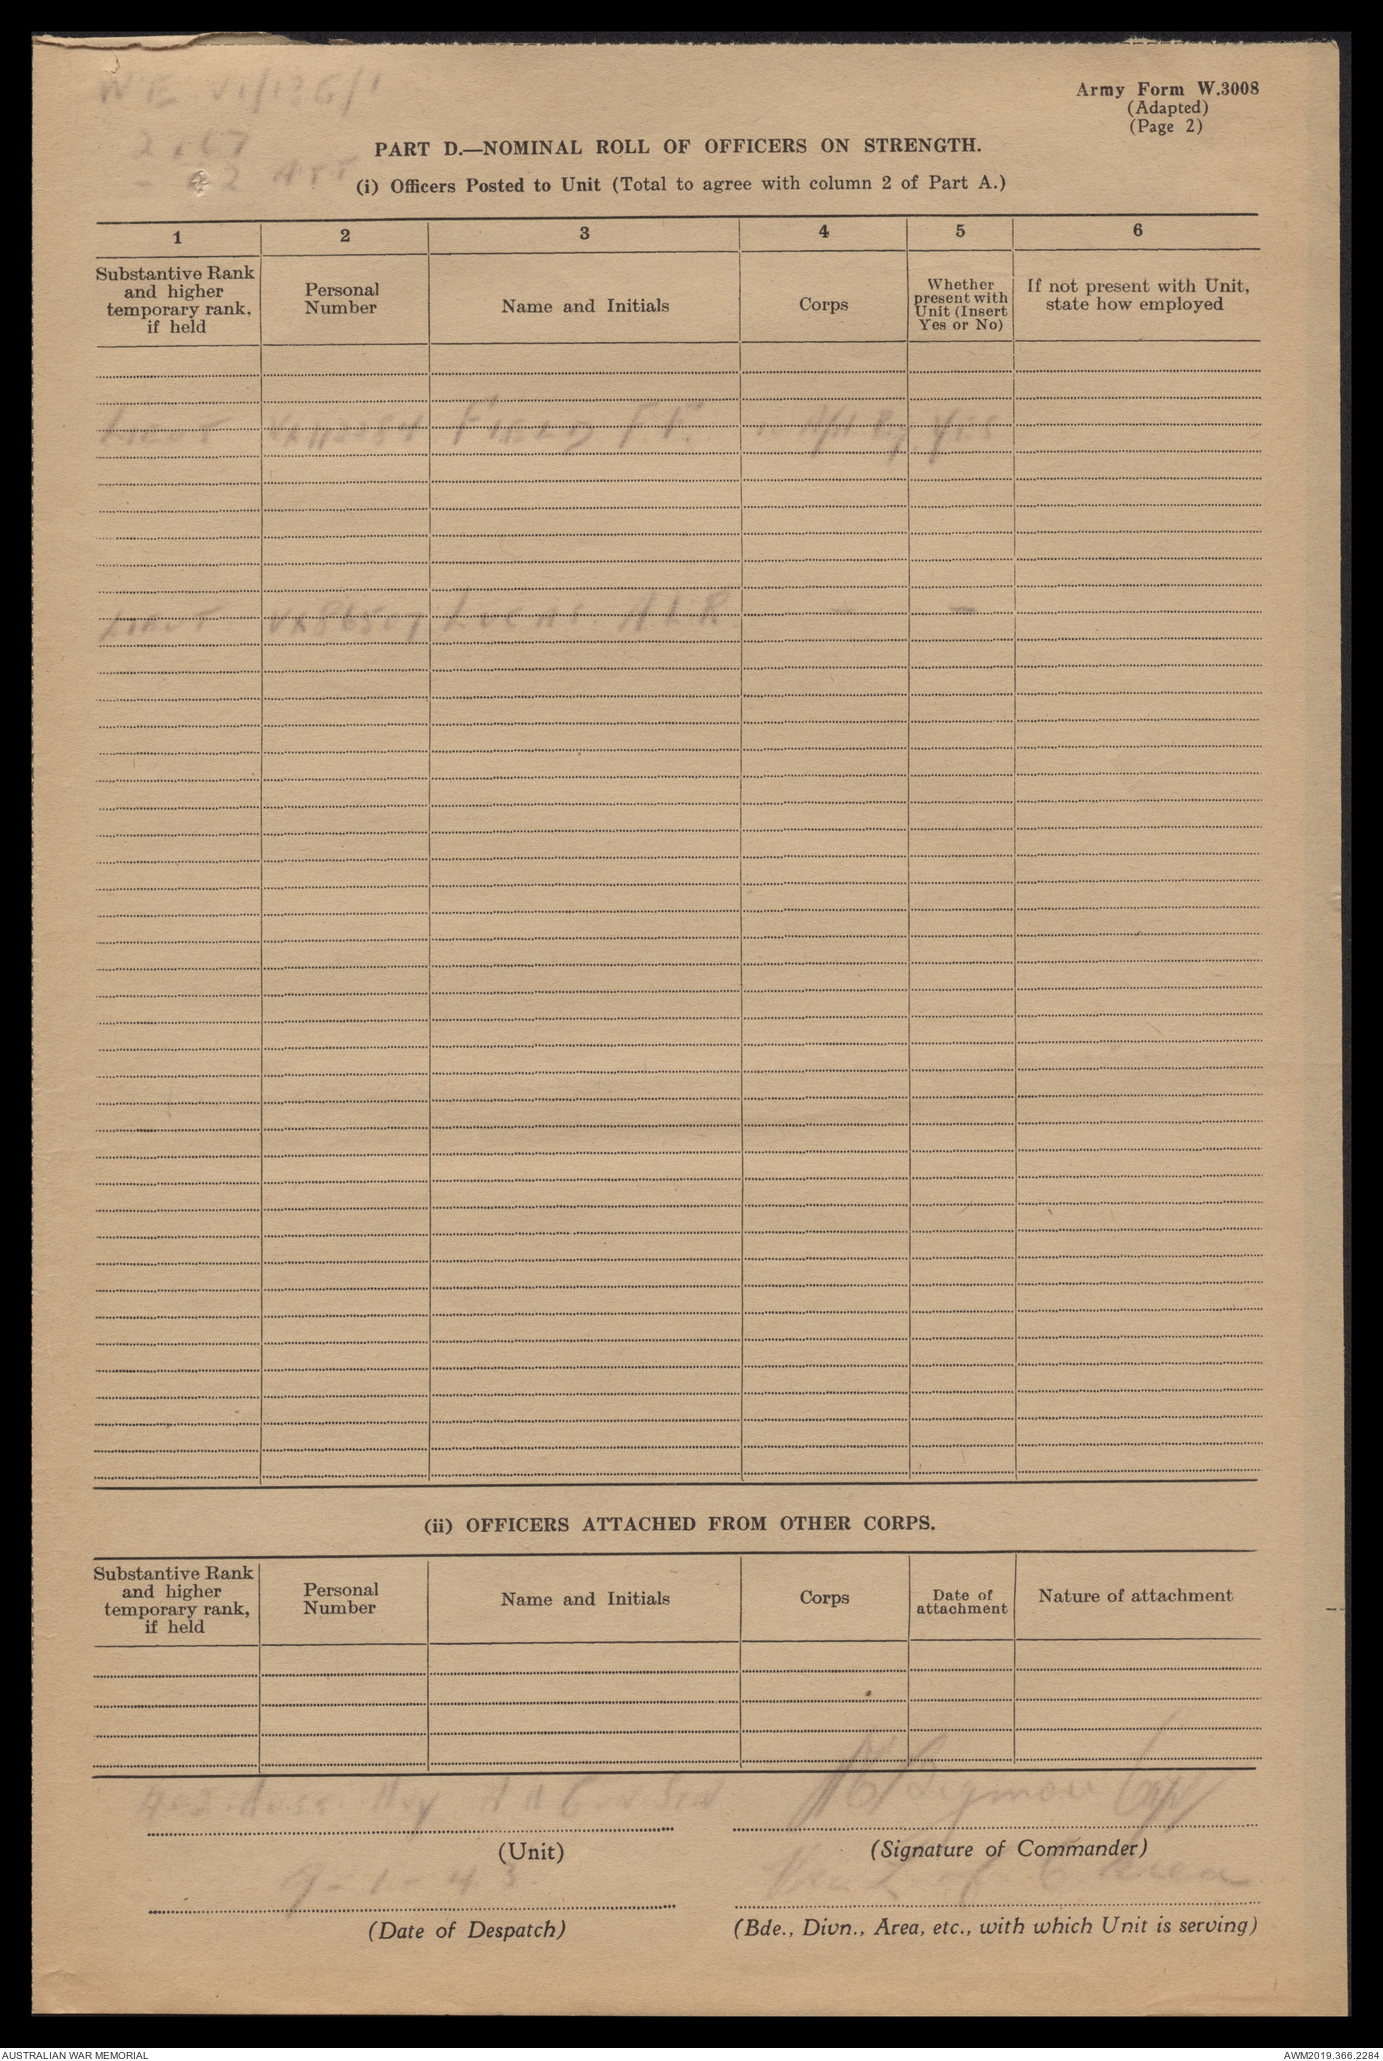 WE VI/13G/1
Army Form W.3008
(Adapted)
(Page 2)
PART D.—NOMINAL ROLL OF OFFICERS ON STRENGTH.
(i) Officers Posted to Unit (Total to agree with column 2 of Part A.)
1 2 3 4 5 6
Substantive Rank and higher temporary rank, if held
Personal Number
Name and Initials
Corps
Whether present with Unit (Insert Yes or No)
If not present with Unit, state how employed
LIEUT FIELD F.F. YES
LIEUT LUCAS. A L R. - -
(ii) OFFICERS ATTACHED FROM OTHER CORPS.
Substantive Rank and higher temporary rank, if held
Personal Number
Name and Initials
Corps
Date of attachment
Nature of attachment
Aust Hvy Capt
(Unit)
(Signature of Commander)
9-1-43 Vic L of C Area
(Date of Despatch)
(Bde., Divn., Area, etc., with which Unit is serving)
AUSTRALIAN WAR MEMORIAL
AWM2019.366.2284